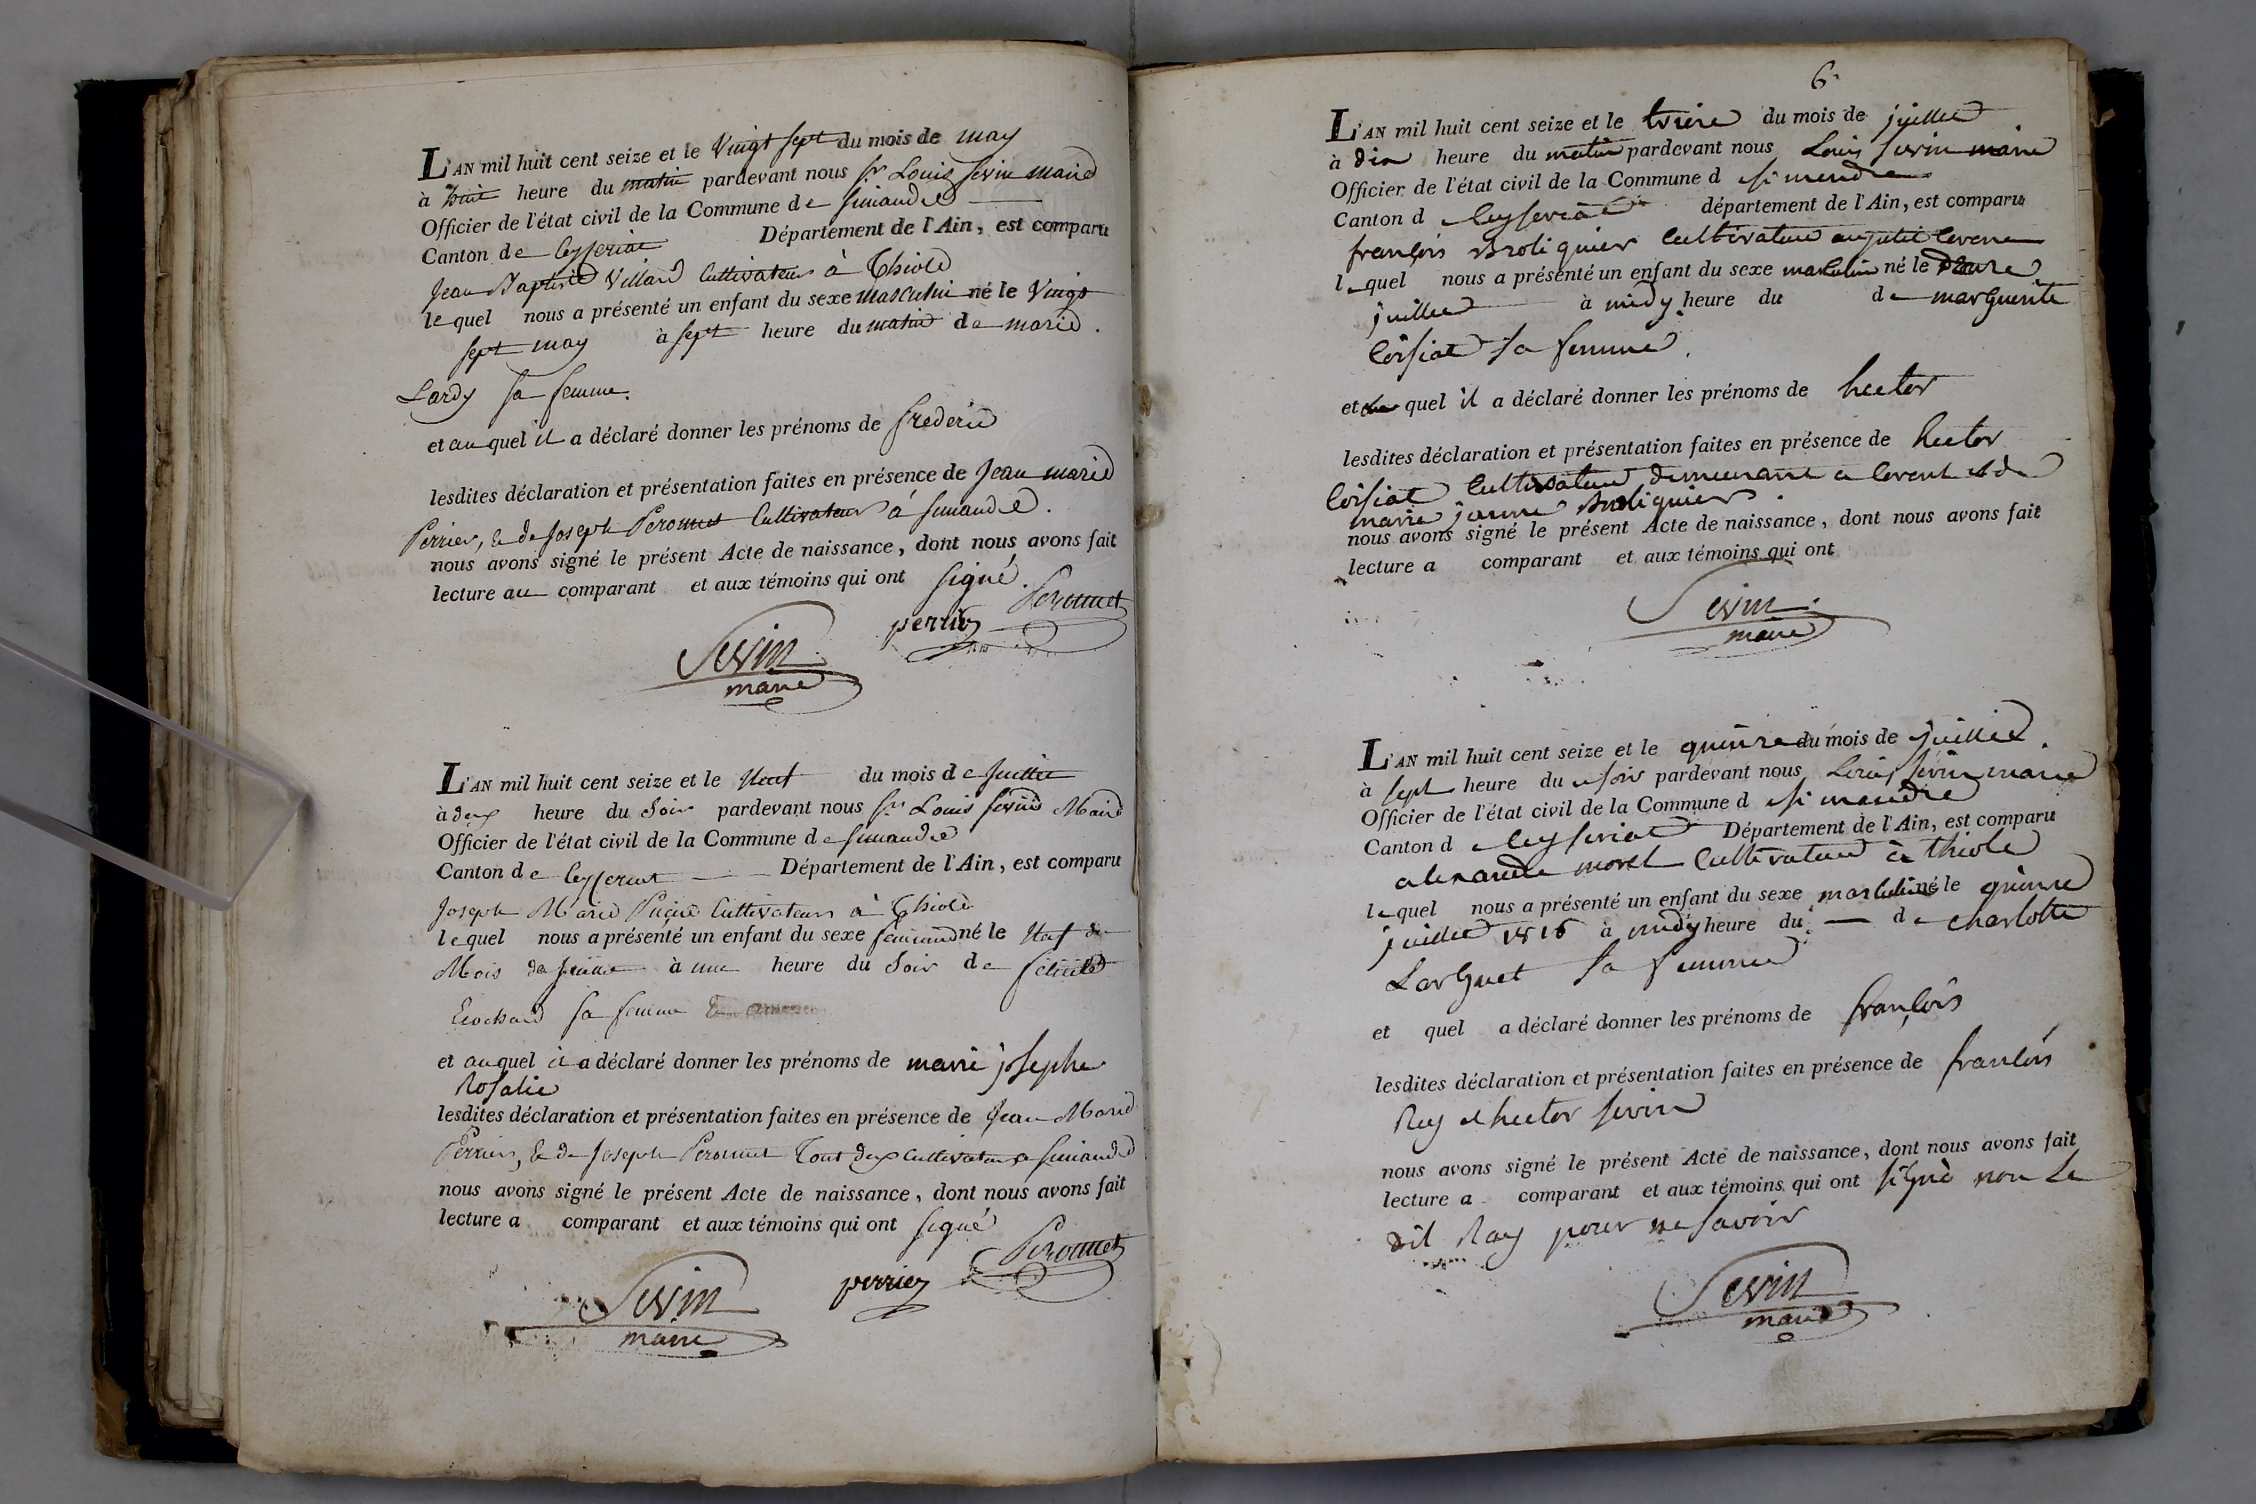 L'AN mil huit cent seize et le Vingt sept du mois de may
à huit heure du matin pardevant nous Sr Louis Sevin maire
Officier de l'état civil de la Commune de Simandre
Canton de Ceyseriat Département de l'Ain, est comparu
Jean Baptiste Villard Cultivateur à Thiole
lequel nous a présenté un enfant du sexe masculin né le Vingt
sept may à sept heure du matin de marie
Lardy sa femme.
et auquel il a déclaré donner les prénoms de frederic
lesdites déclaration et présentation faites en présence de Jean marie
Perrier, & de Joseph Peromet Cultivateur à Simandre.
nous avons signé le présent Acte de naissance, dont nous avons fait
lecture au comparant et aux témoins qui ont signé.
perrier Peromet
Sevin
maire
L'AN mil huit cent seize et le Neuf du mois de Juillet
à deux heure du Soir pardevant nous Sr Louis Sevin Maire
Officier de l'état civil de la Commune de Simandre
Canton de Ceyseriat Département de l'Ain, est comparu
Joseph Marie Cultivateur à Thiole
lequel nous a présenté un enfant du sexe feminin né le Neuf du
Mois de Juillet à une heure du Soir de
sa femme
et auquel il a déclaré donner les prénoms de marie josephe
Rosalie
lesdites déclaration et présentation faites en présence de Jean Marie
Perrier, & de Joseph Peromet Tout deux Cultivateur a Simandre
nous avons signé le présent Acte de naissance, dont nous avons fait
lecture a comparant et aux témoins qui ont signé
perrier Peromet
Sevin
maire
6
L'AN mil huit cent seize et le treize du mois de juillet
à dix heure du matin pardevant nous Louis Sevin maire
Officier de l'état civil de la Commune d si mendre
Canton d Ceyseriat département de l'Ain, est comparu
françois Broliquier Cultivateur au petit Corent
lequel nous a présenté un enfant du sexe masculin né le douze
juillet à midy heure du de marguerite
Coisiat sa femme.
et quel il a déclaré donner les prénoms de hector
lesdites déclaration et présentation faites en présence de hector
Coisiat Cultivateur demeurant a Corent et de
marie jeanne Broliquier.
nous avons signé le présent Acte de naissance, dont nous avons fait
lecture a comparant et aux témoins qui ont
Sevin
maire
L'AN mil huit cent seize et le quinze du mois de juillet.
à sept heure du soir pardevant nous Louis Sevin maire
Officier de l'état civil de la Commune d si mandre
Canton d Ceyseriat Département de l'Ain, est comparu
alexandre morel Cultivateur à thiole
lequel nous a présenté un enfant du sexe masculin né le quinze
juillet 1816 à midy heure du — de charlotte
Larguet sa femme
et quel a déclaré donner les prénoms de françois
lesdites déclaration et présentation faites en présence de françois
Ray et hector Sevin
nous avons signé le présent Acte de naissance, dont nous avons fait
lecture a comparant et aux témoins qui ont signé non le
dit Ray pour ne savoir
Sevin
maire